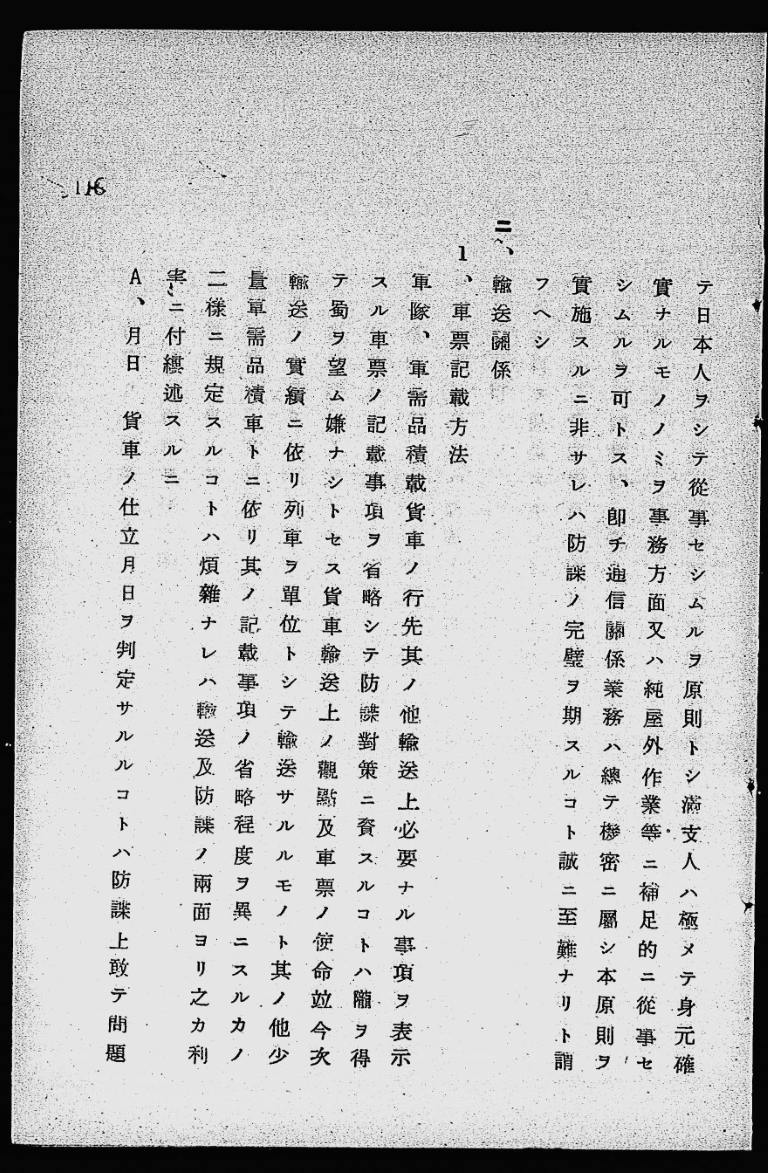 テ日本人ヲシテ從事セシムルヲ原則トシ滿支人ハ極メテ身元確
實ナルモノノミヲ事務方面又ハ純屋外作業等ニ補足的ニ從事セ
シムルヲ可トス、卽チ通信關係業務ハ總テ機密ニ屬シ本原則ヲ
實施スルニ非サレハ防諜ノ完璧ヲ期スルコト誠ニ至難ナリト謂
フヘシ
二、輸送關係
1、車票記載方法
軍隊、軍需品積載貨車ノ行先其ノ他輸送上必要ナル事項ヲ表示
スル車票ノ記載事項ヲ省略シテ防諜對策ニ資スルコトハ隴ヲ得
テ蜀ヲ望ム嫌ナシトセス貨車輸送上ノ觀點及車票ノ使命竝今次
輸送ノ實績ニ依リ列車ヲ單位トシテ輸送サルルモノト其ノ他少
量軍需品積車トニ依リ其ノ記載事項ノ省略程度ヲ異ニスルカノ
二樣ニ規定スルコトハ煩雜ナレハ輸送及防諜ノ兩面ヨリ之カ利
害ニ付縷述スルニ
A、月日 貨車ノ仕立月日ヲ判定サルルコトハ防諜上敢テ問題
116